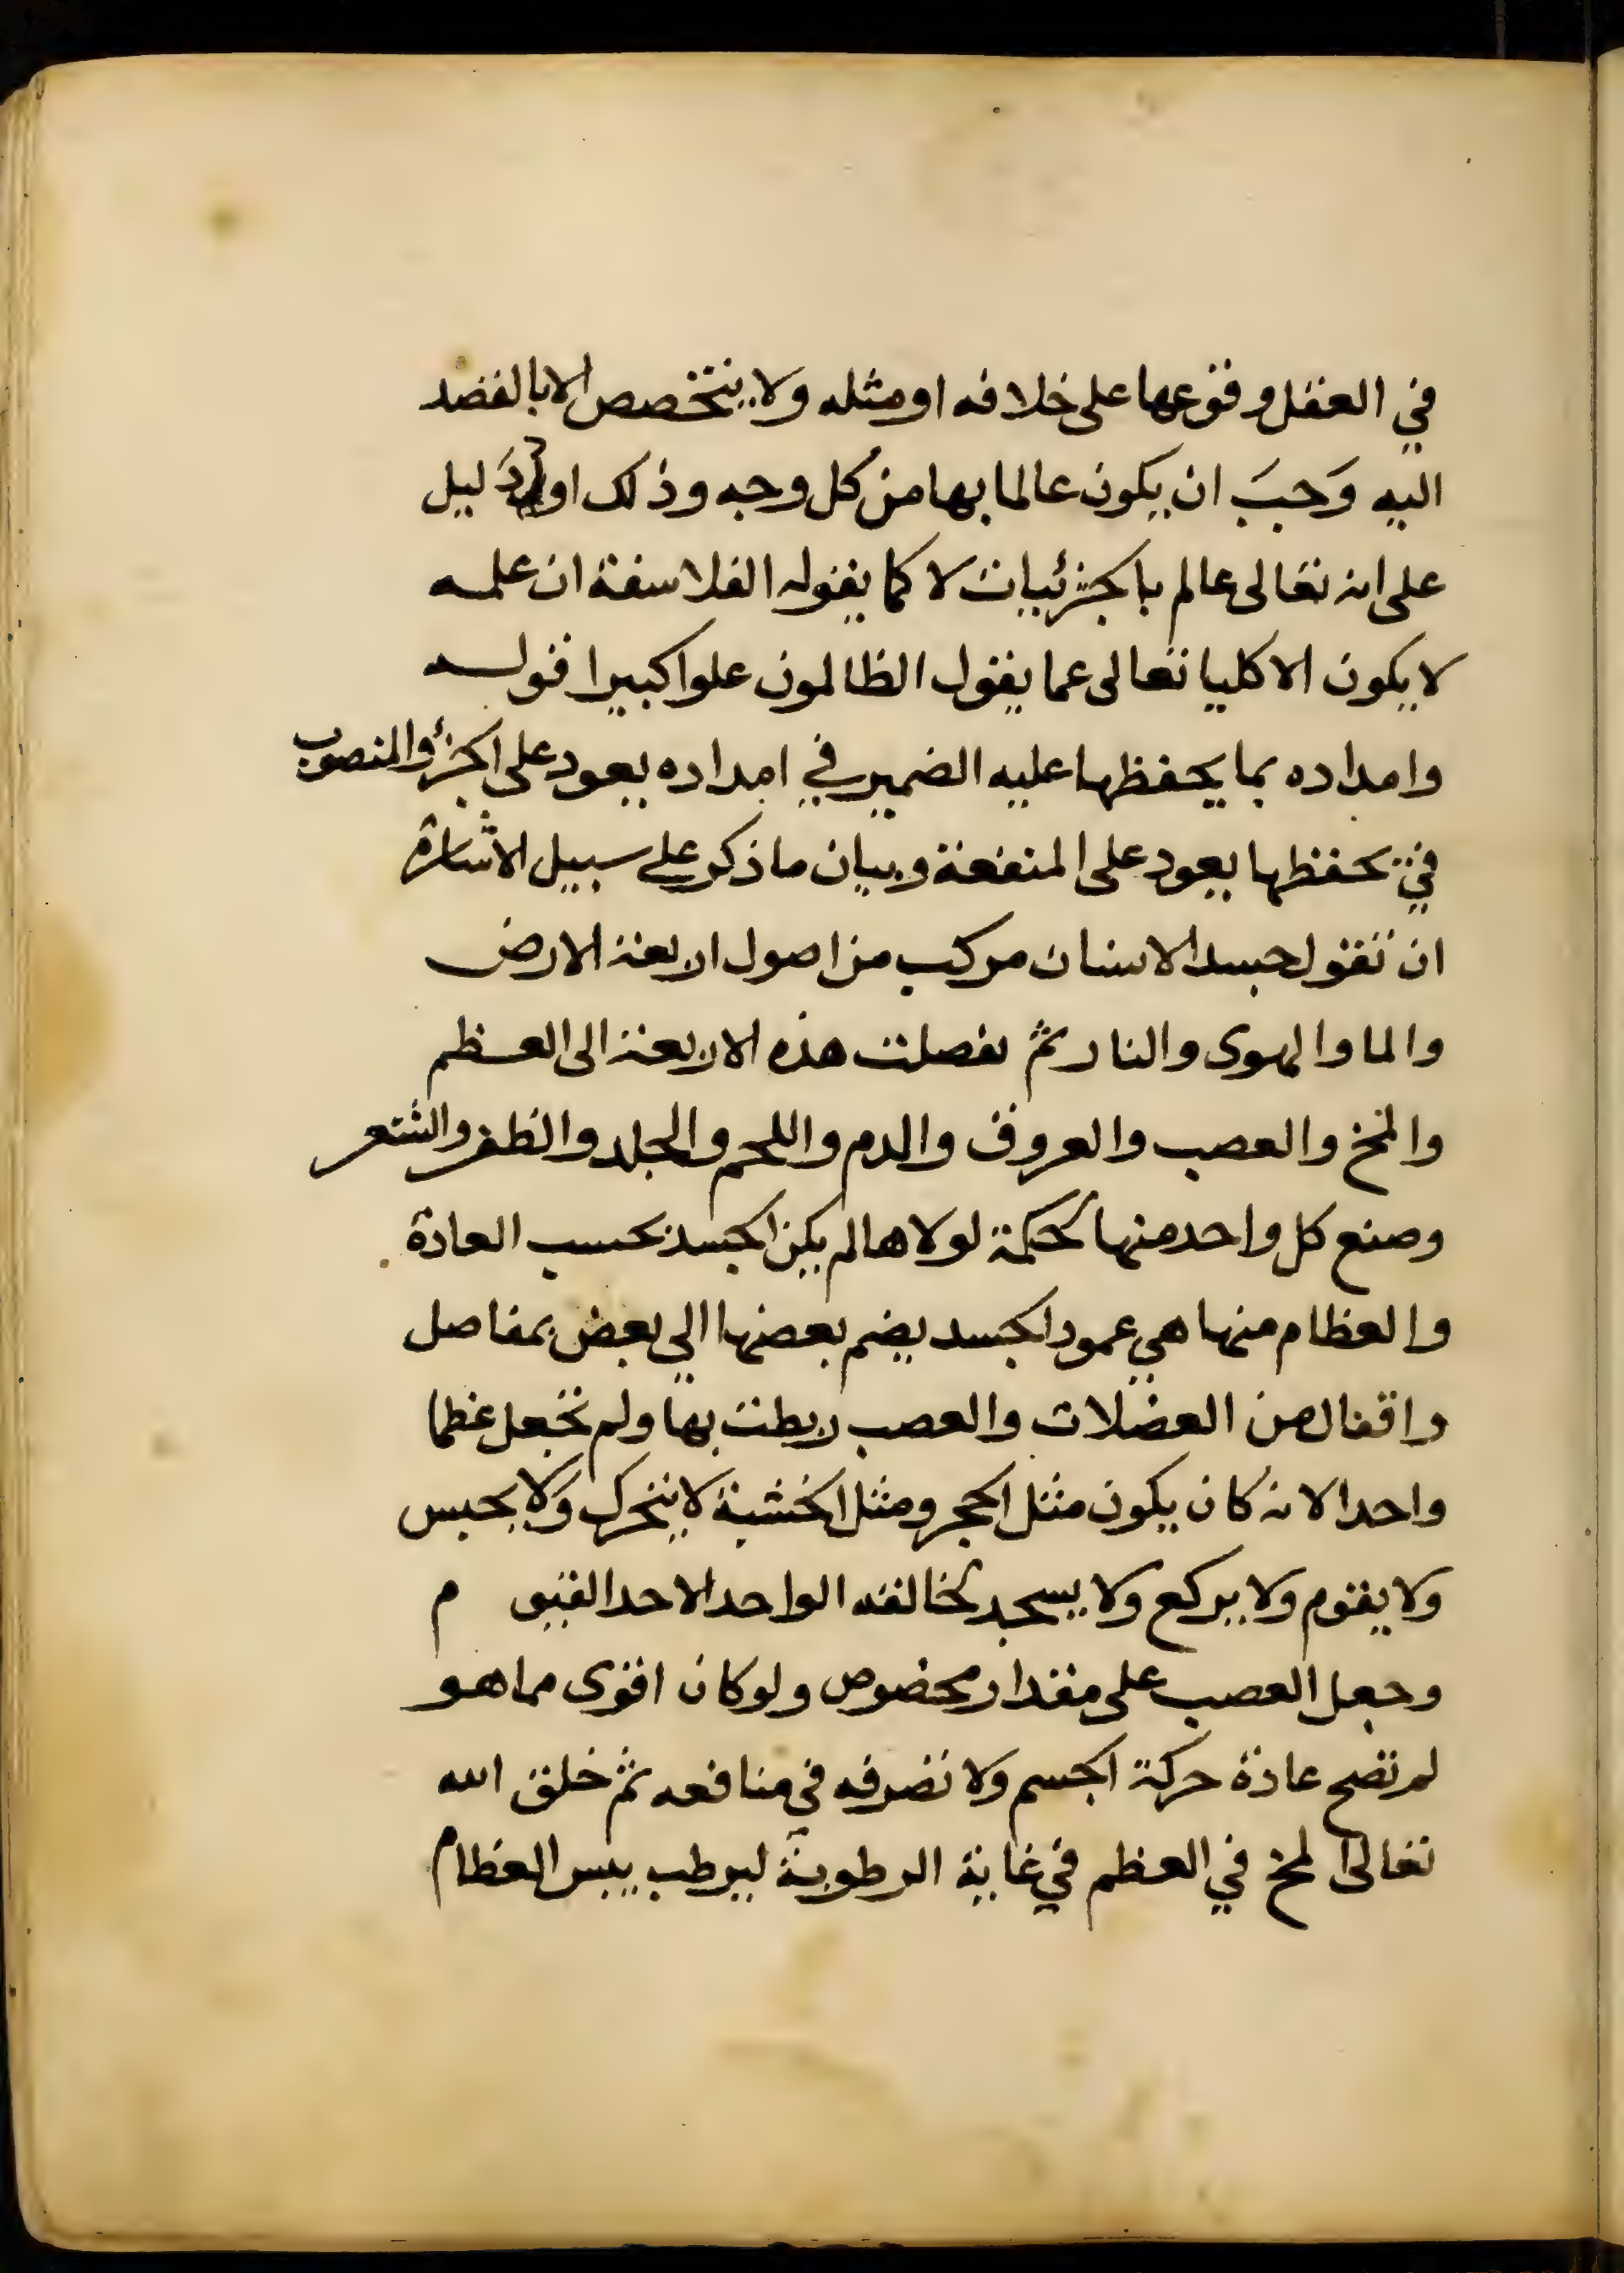 في العقل وقوعها على خلافه او مثله ولا يتخصص الا بالقصد
اليه وَجبَ ان يكون عالما بها من كل وجه وذلك اول دَليل
على انه تعالى عالم بالجزئيات لا كما يقوله الفلاسفة ان علمه
لا يكون الا كليا تعالى عما يقول الظالمون علوا كبيرا قوله
وامداده بما يحفظها عليه الضمير في امداده يعود على الجزؤ والمنصوب
في يحفظها يعود على المنفعة وبيان ما ذكر علي سبيل الاشارة
ان تقول جسد الانسان مركب من اصول اربعة الارض
والما والهوى والنار ثم فصلت هذه الاربعة الى العظم
والمخ والعصب والعروق والدم واللحم والجلد والظفر والشعر
وصنع كل واحد منها لحكمة لولاها لم يكن الجسد بحسب العادة
والعظام منها هي عمود الجسد يضم بعضها الي بعض بمفاصل
واقفال من العضلات والعصب ربطت بها ولم تجعل عظما
واحدا لانه كان يكون مثل الحجر ومثل الخشبة لا يتحرك ولا يجلس
ولا يقوم ولا يركع ولا يسجد لخالقه الواحد الاحد القيو م
وجعل العصب على مقدار مخصوص ولو كان اقوى مما هو
لم تصح عادة حركة الجسم ولا تصرفه في منافعه ثم خلق الله
تعالى المخ في العظم في غاية الرطوبة ليرطب يبس العظام